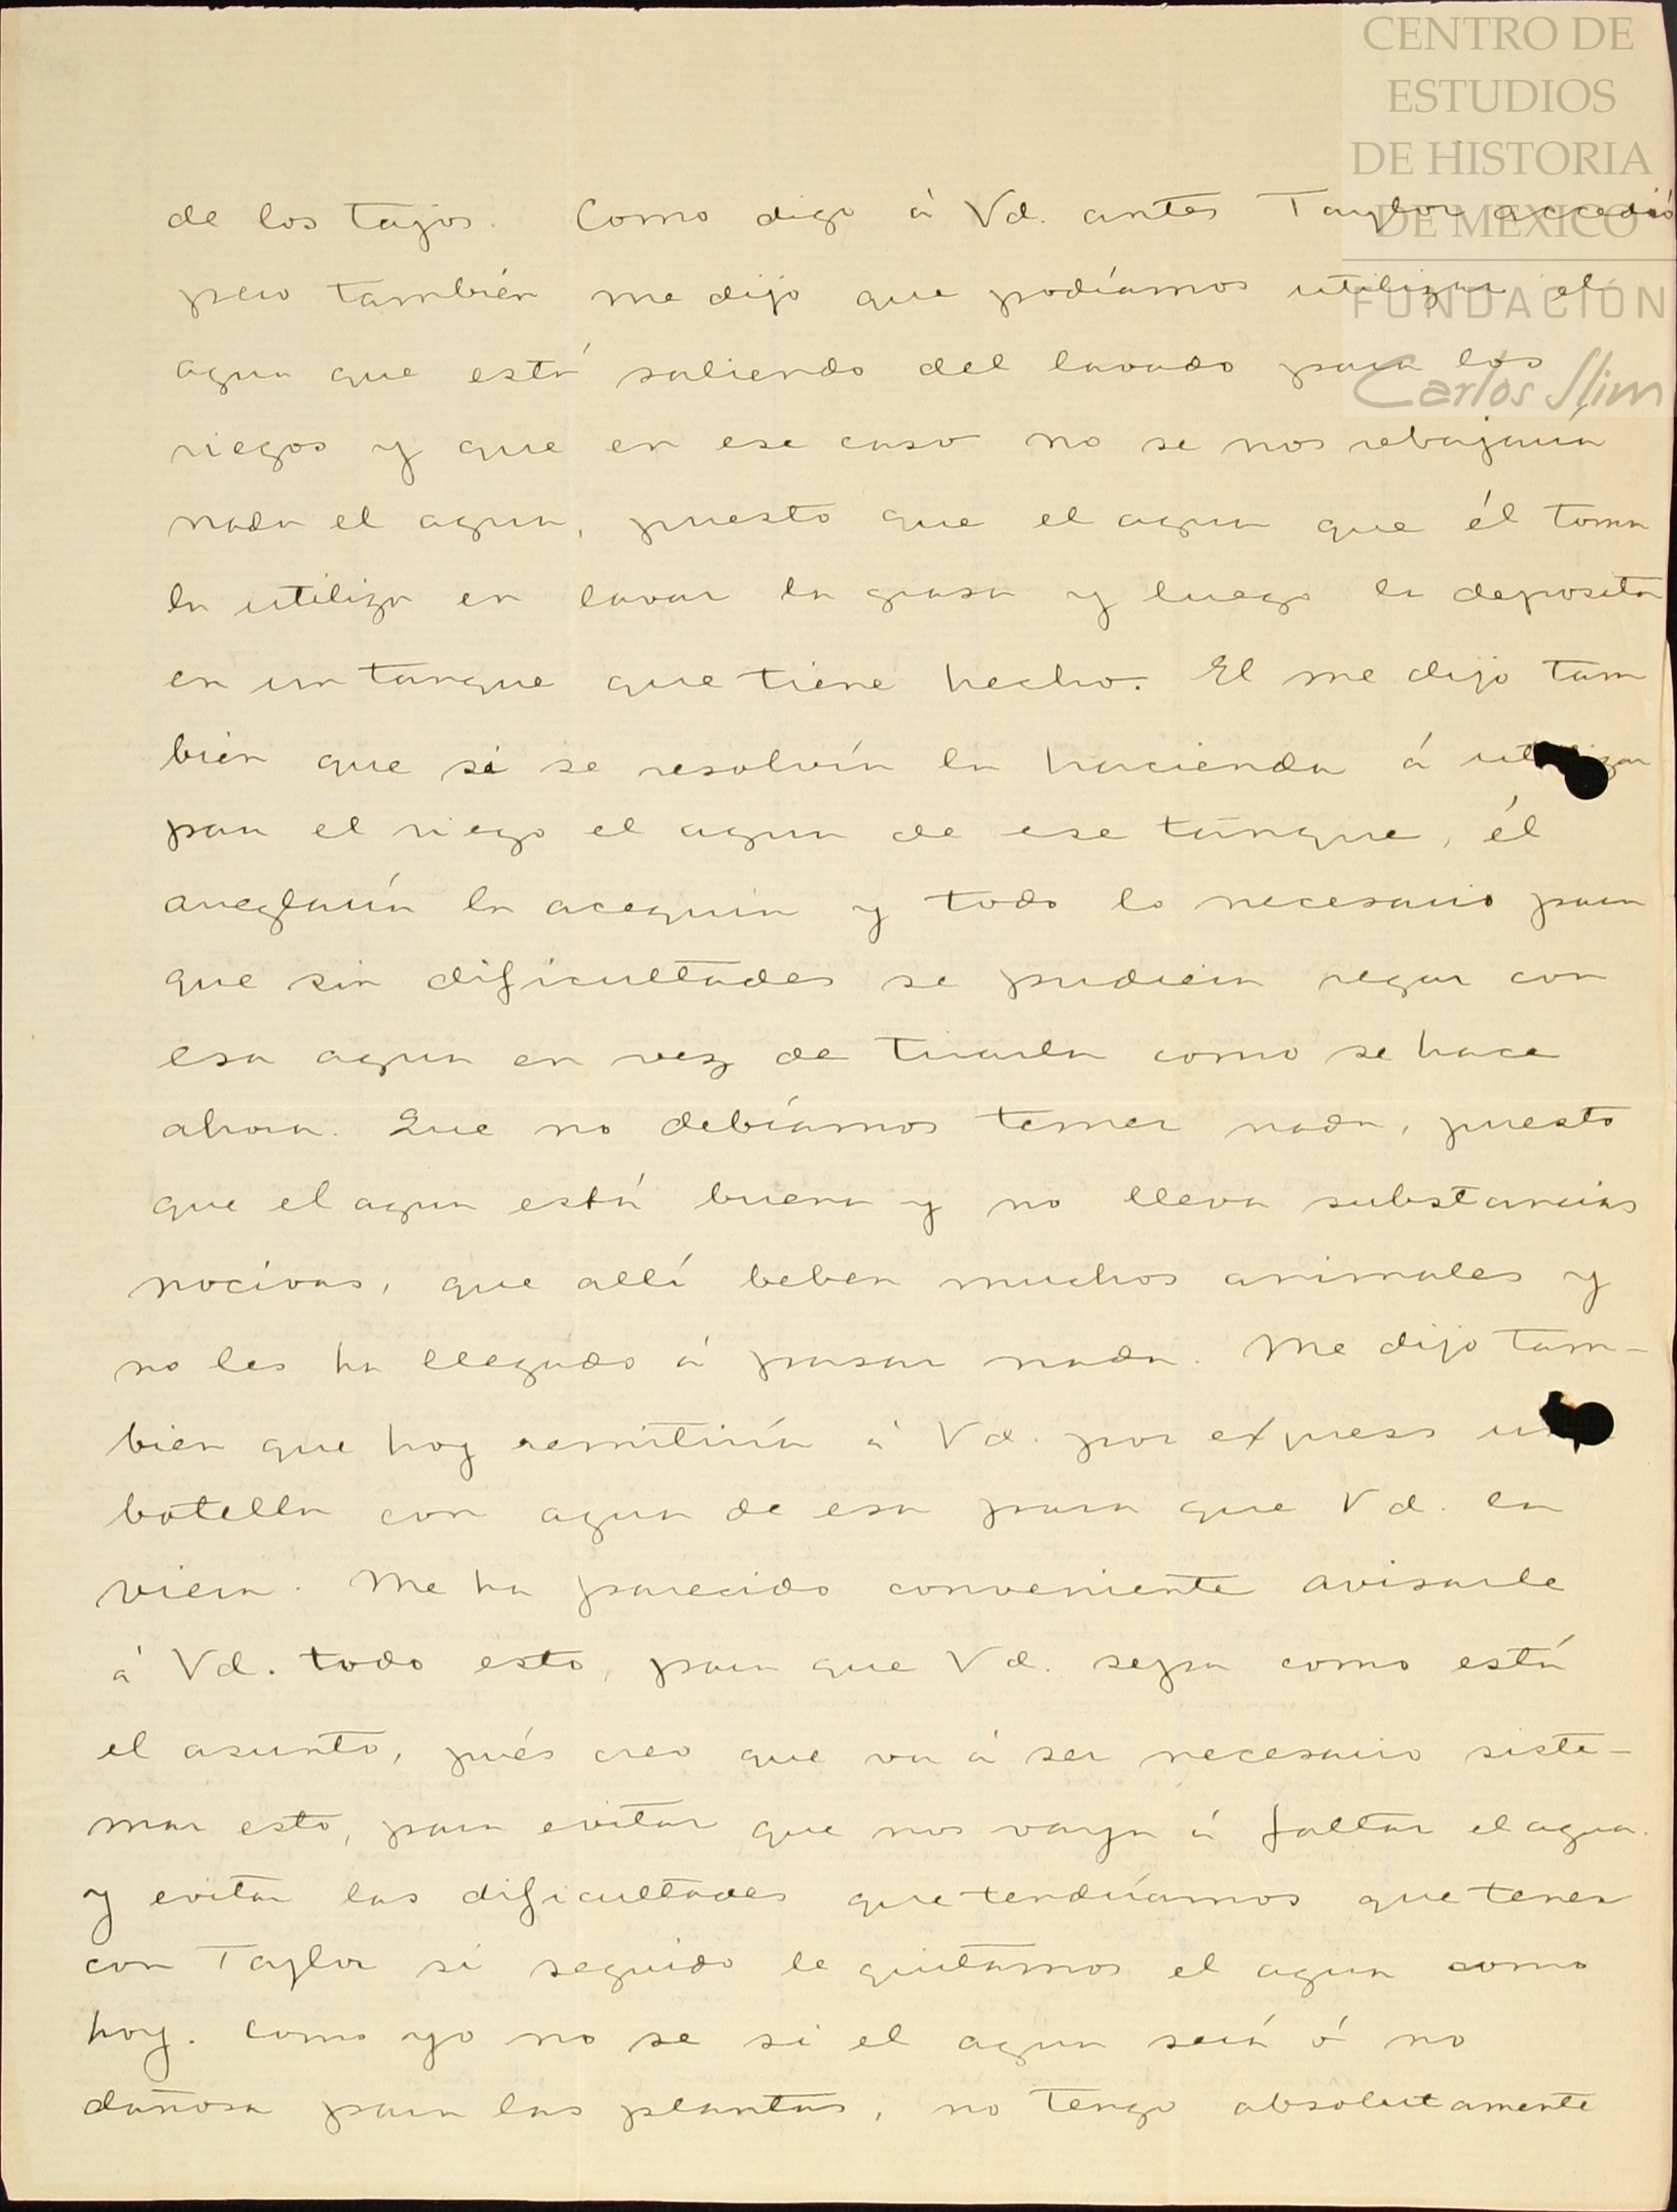 CENTRO DE
ESTUDIOS
DE HISTORIA
DE MEXICO
FUNDACIÓN
Carlos Slim
de los tajos. Como digo á Vd. antes Taylor accedió
pero también me dijo que podíamos utilizar el
agua que está saliendo del lavado para los
riegos y que en ese caso no se nos rebajaría
nada el agua, puesto que el agua que él toma
la utiliza en lavar la grasa y luego la deposita
en un tanque que tiene hecho. El me dijo tam
bién que si se resolvía la hacienda á utilizar
para el riego el agua de ese tanque, él
arreglaría la acequia y todo lo necesario para
que sin dificultades se pudiera regar con
esa agua en vez de tirarla como se hace
ahora. Que no debíamos temer nada, puesto
que el agua está buena y no lleva substancias
nocivas, que allí beben muchos animales y
no les ha llegado á pasar nada. Me dijo tam-
bien que hoy remitiría á Vd. por express
botella con agua de esa para que Vd. la
viera. Me ha parecido conveniente avisarle
á Vd. todo esto, para que Vd. sepa como está
el asunto, pués creo que va á ser necesario siste-
mar esto, para evitar que nos vaya á faltar el agua.
y evitar las dificultades que tendríamos que tener
con Taylor si seguido le quitamos el agua como
hoy. Como yo no se si el agua será ó no
dañosa para las plantas, no tengo absolutamente